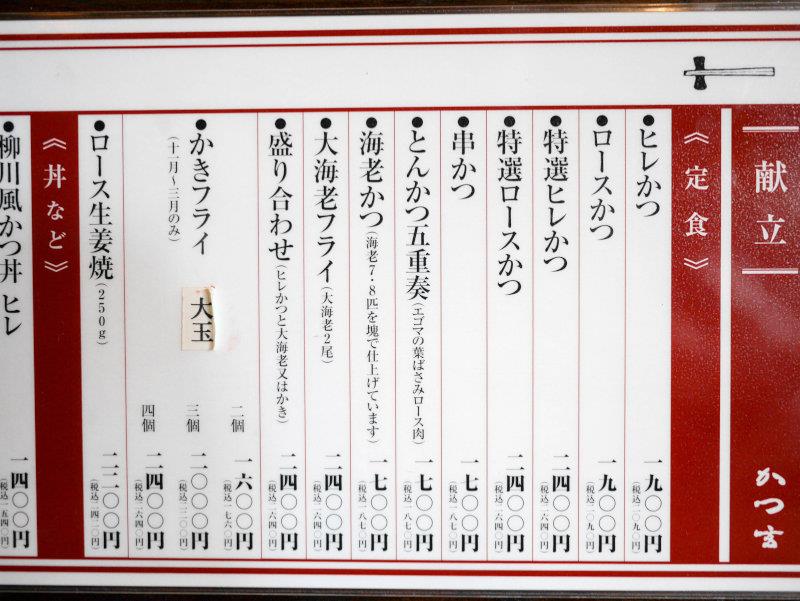 献立
かつ玄
《定食》
●ヒレかつ 一九〇〇円
(税込二〇九〇円)
●ロースかつ 一九〇〇円
(税込二〇九〇円)
●特選ヒレかつ 二四〇〇円
(税込二六四〇円)
●特選ロースかつ 二四〇〇円
(税込二六四〇円)
●串かつ 一七〇〇円
(税込一八七〇円)
●とんかつ五重奏(エゴマの葉ばさみロース肉) 一七〇〇円
(税込一八七〇円)
●海老かつ(海老7・8匹を塊で仕上げています) 一七〇〇円
(税込一八七〇円)
●大海老フライ(大海老2尾) 二四〇〇円
(税込二六四〇円)
●盛り合わせ(ヒレかつと大海老又はかき) 二四〇〇円
(税込二六四〇円)
●かきフライ 大玉
(十一月〜三月のみ)
二個 一六〇〇円
(税込一七六〇円)
三個 二〇〇〇円
(税込二二〇〇円)
四個 二四〇〇円
(税込二六四〇円)
●ロース生姜焼(250g) 二二〇〇円
(税込二四二〇円)
《丼など》
●柳川風かつ丼 ヒレ 一四〇〇円
(税込一五四〇円)